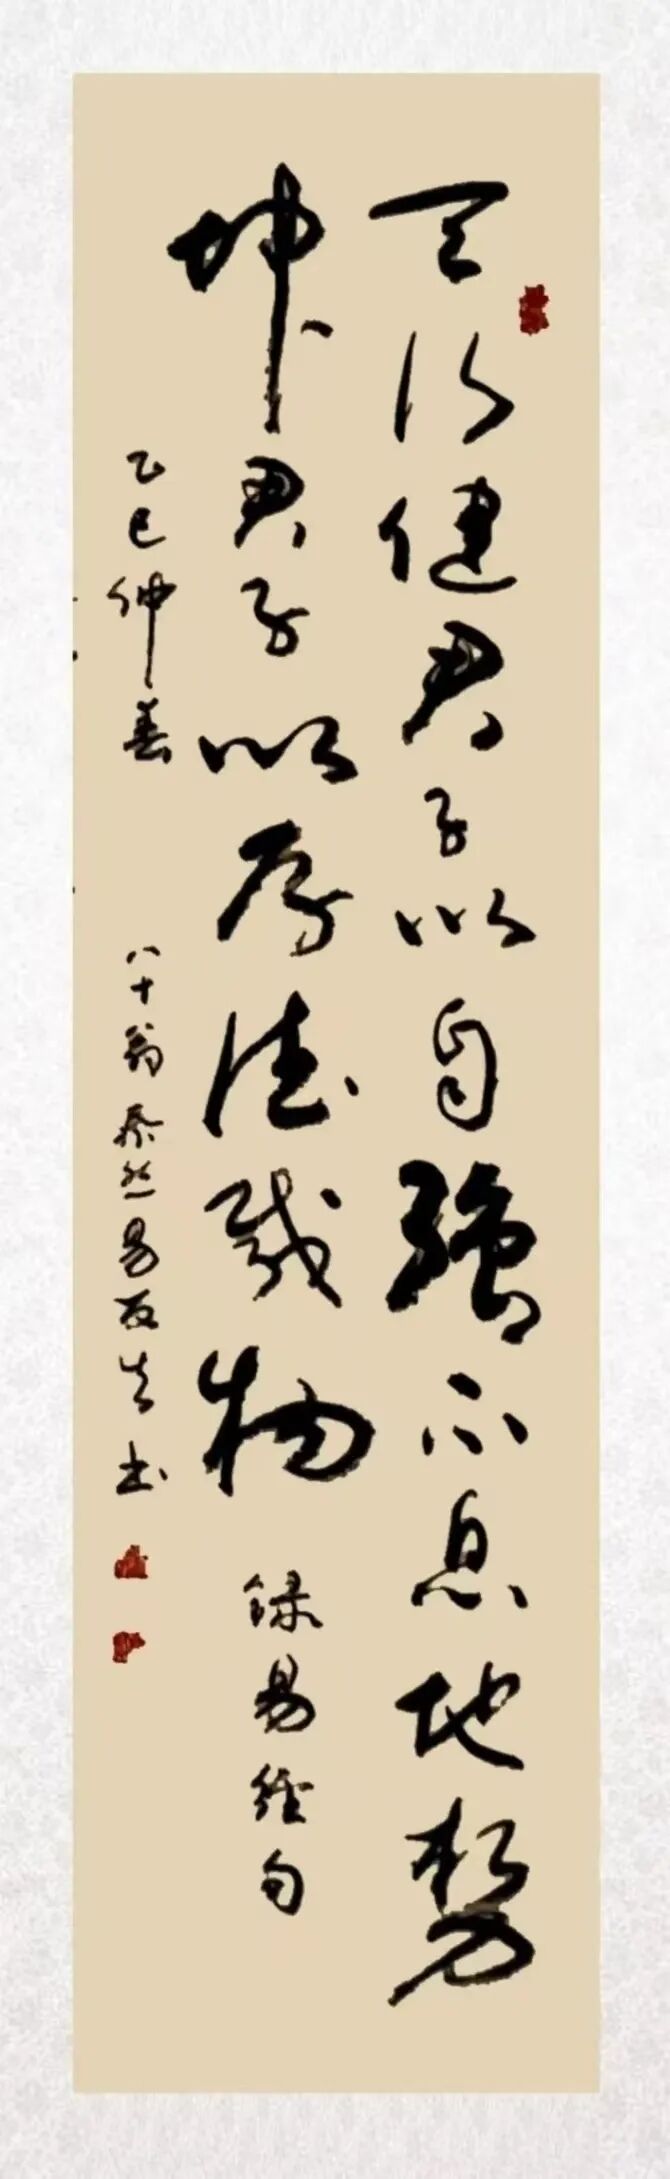 天行健君子以自強不息地勢
坤君子以厚德载物
録易经句
乙巳仲春
八十翁泰然易友生书